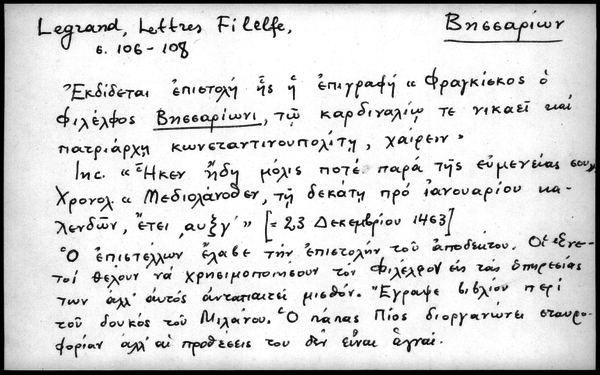 Legrand, Lettres Filelfe,
Βησσαρίων
σ. 106 - 108
Ἐκδίδεται ἐπιστολή ἧς ἡ ἐπιγραφή « Φραγκίσκος ὁ
Φιλέλφος Βησσαρίωνι, τῷ καρδιναλίῳ τε νικαεῖ καί
πατριάρχῃ κωνσταντινουπολίτῃ, χαίρειν»
Inc. « Ἧκεν ἤδη μόλις ποτέ παρά τῆς εὐμενείας σου»
Χρονολ. « Μεδιολάνοθεν, τῇ δεκάτῃ πρό ἰανουαρίου κα-
λενδῶν, ἔτει ͵αυξγʹ» [= 23 Δεκεμβρίου 1463]
Ὁ ἐπιστέλλων ἔλαβε τήν ἐπιστολήν τοῦ ἀποδέκτου. Οἱ Ἑνε-
τοί θέλουν νά χρησιμοποιήσουν τόν Φιλέλφον εἰς τάς ὑπηρεσίας
των ἀλλ' αὐτός ἀνταπαιτεῖ μισθόν. Ἔγραψε βιβλίον περί
τοῦ δουκός τοῦ Μιλάνου. Ὁ πάπας Πίος διοργανώνει σταυρο-
φορίαν ἀλλ' αἱ προθέσεις του δέν εἶναι ἁγναί.